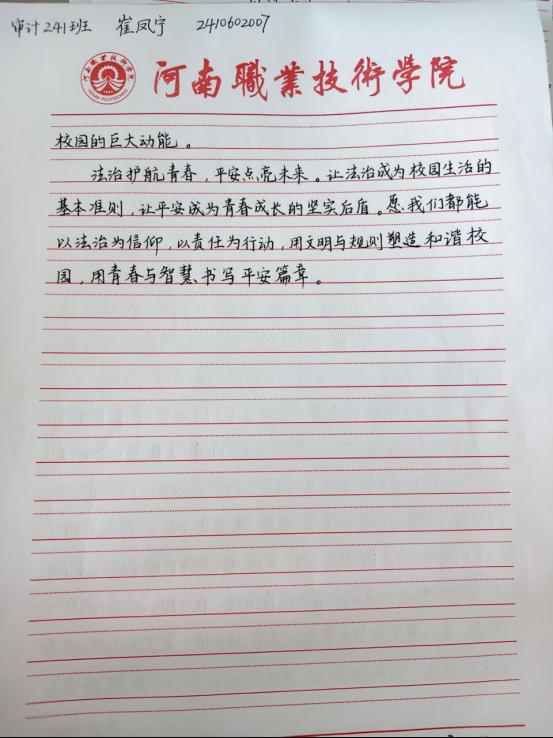 审计241班 崔凤宁 2410602007
河南職業技術学院
校园的巨大动能。
法治护航青春，平安点亮未来。让法治成为校园生活的
基本准则，让平安成为青春成长的坚实后盾。愿我们都能
以法治为信仰，以责任为行动，用文明与规则塑造和谐校
园，用青春与智慧书写平安篇章。